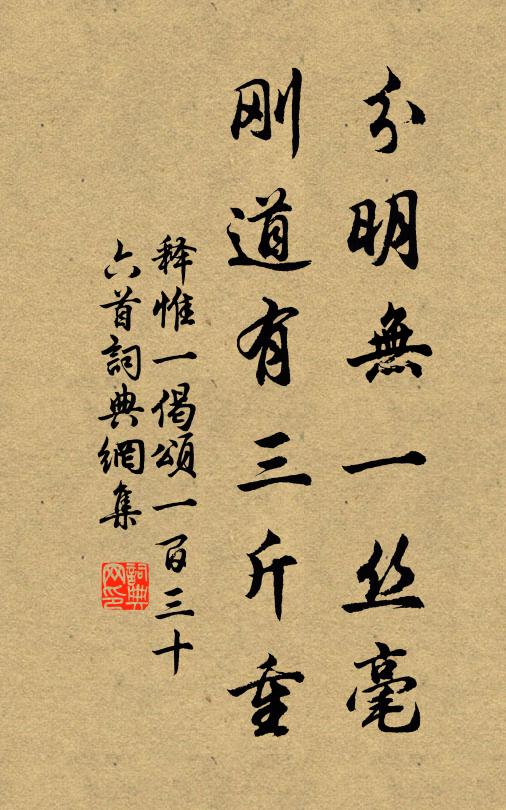 分明無一丝毫
刚道有三斤重
释惟一偈頌一百三十
六首詞典網集
詞典网印